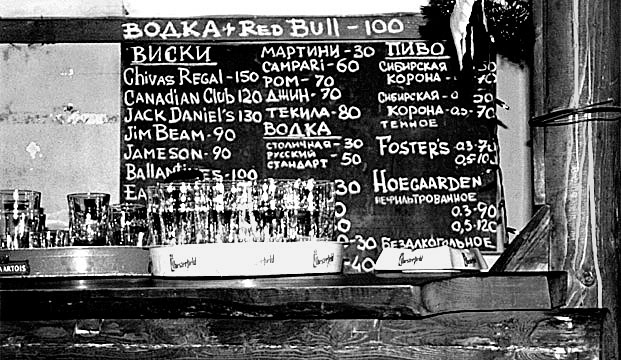 ВОДКА + RED BULL - 100
ВИСКИ
CHIVAS REGAL - 150
CANADIAN CLUB 120
JACK DANIEL'S 130
JIM BEAM - 90
JAMESON - 90
BALLANTINES - 100
МАРТИНИ - 30
CAMPARI - 60
РОМ - 70
ДЖИН - 70
ТЕКИЛА - 80
ВОДКА
СТОЛИЧНАЯ - 30
РУССКИЙ
СТАНДАРТ - 50
30
30
40
ПИВО
СИБИРСКАЯ 50
КОРОНА 70
СИБИРСКАЯ 50
КОРОНА - 0,5 - 70
ТЕМНОЕ
FOSTER'S - 0,3 - 70
0,5 / 0
HOEGAARDEN
НЕФИЛЬТРОВАННОЕ
0,3 - 90
0,5 - 120
БЕЗАЛКОГОЛЬНОЕ
ARTOIS
Chesterfield
Chesterfield
Chesterfield